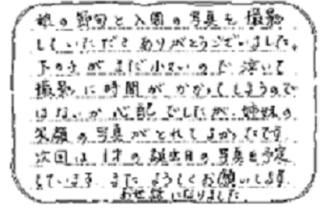 娘の節句と入園の写真を撮影
していただき ありがとうございました。
下の子が まだ小さいので 泣いて
撮影に時間が かかってしまうので
はないか 心配でしたが、姉妹の
笑顔の写真がとれて よかったです。
次回は 1才の誕生日の写真を予定
しています。また よろしくお願いします。
お世話になりました